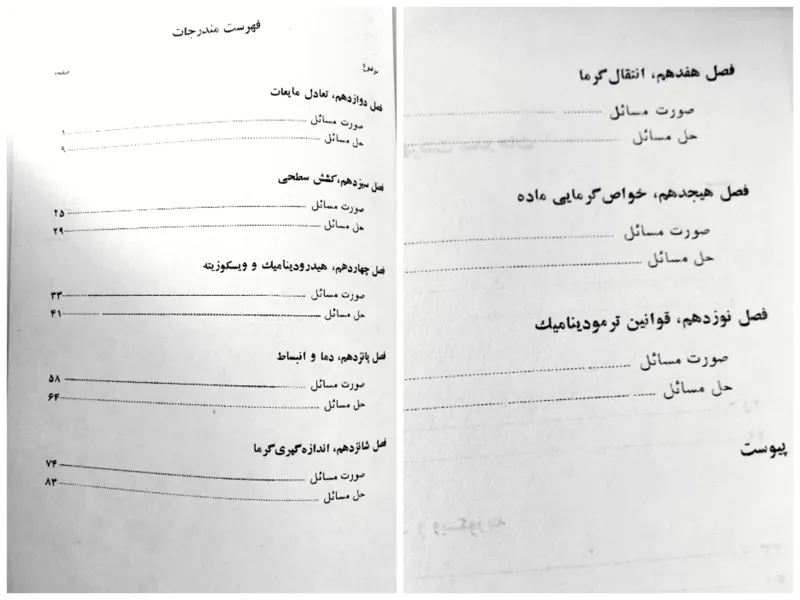 فهرست مندرجات
موضوع صفحه
فصل دوازدهم، تعادل مایعات
صورت مسائل ۱
حل مسائل ۹
فصل سیزدهم، کشش سطحی
صورت مسائل ۲۵
حل مسائل ۲۹
فصل چهاردهم، هیدرودینامیك و ویسکوزیته
صورت مسائل ۳۳
حل مسائل ۴۱
فصل پانزدهم، دما و انبساط
صورت مسائل ۵۸
حل مسائل ۶۴
فصل شانزدهم، اندازه‌گیری گرما
صورت مسائل ۷۴
حل مسائل ۸۳
فصل هفدهم، انتقال گرما
صورت مسائل
حل مسائل
فصل هیجدهم، خواص گرمایی ماده
صورت مسائل
حل مسائل
فصل نوزدهم، قوانین ترمودینامیك
صورت مسائل
حل مسائل
پیوست